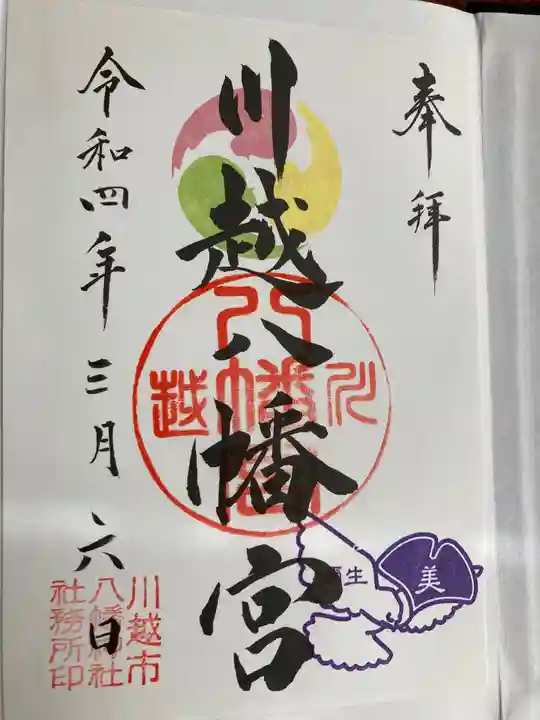 奉拝
川越八幡宮
令和四年三月六日
川越八幡宮
生
美
川越市
八幡神社
社務所印